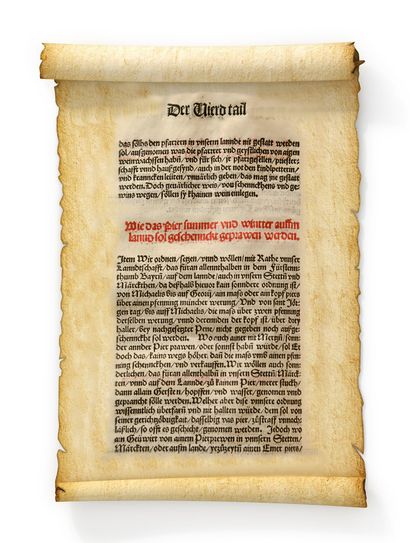 Der Vierd tail
das sölhs den pfarrern in vnserm lannde nit gestatt werden
sol/ aufgenomen was die pfarrer vnd geystlichen von aigen
weinwachssen habñ/ vnd für sich/ jr pfarrgesellen/ priester-
schafft vnnd haußgesynd/ auch in der not den kindlpetterñ/
vnd kranncken leüten/ vnuärlich geben/ das mag jne gestatt
werden. Doch geuärlicher weis/ von schennckhens vnd ge-
wins wegen/ söllen sy khainen wein einlegen.
Wie das Pier summer vnd winter auffm
lannd sol geschennckt vnd geprawen werden.
Item Wir ordnen/ setzen/ vnnd wöllen/ mit Rathe vnnser
Lanndtschafft/ das füran allennthalben in dem Fürstenn-
thumb Bayrñ/ auf dem lannde/ auch in vnsern Stettñ vnd
Märckthen/ da deßhalb hieuor kain sonndere ordnung ist/
von Michaelis bis auf Georij/ ain mass oder ain kopf piers
über ainen pfenning müncher werung/ Vnd von sant Jör-
gen tag/ bis auff Michaelis/ die mass über zwen pfenning
derselben werung/ vnnd derennden der kopf ist/ über drey
haller/ bey nachgesetzter Pene/ nicht gegeben noch außge-
schennckht sol werden. Wo auch ainer nit Mertzñ/ sonnder
annder Pier prawen/ oder sonnst haben würde/ sol Er
doch das/ kains wegs höher/ dañ die mass vmb ainen pfen-
ning schennckhen/ vnd verkauffen. Wir wöllen auch sonn-
derlichen/ das füran allenthalbñ in vnsern Stettñ/ Märck-
ten/ vnnd auf dem Lannde/ zů kainem Pier/ merer stuckh/
dann allain Gersten/ hopffen/ vnd wasser/ genomen vnd
geprawcht sölle werden. Welher aber dise vnnsere ordnung
wissenntlich überfarñ vnd nit hallten würde/ dem sol von
seiner gerichtzöbrigkait/ dasselbig vas pier/ zůstraff vnnach-
läßlich/ so offt es geschicht/ genomen werden. Jedoch wo
ain Geüwirt von ainem Pierprewen in vnnsern Stetten/
Märckten/ oder aufm lande/ yezůzeytñ ainen Emer piers/